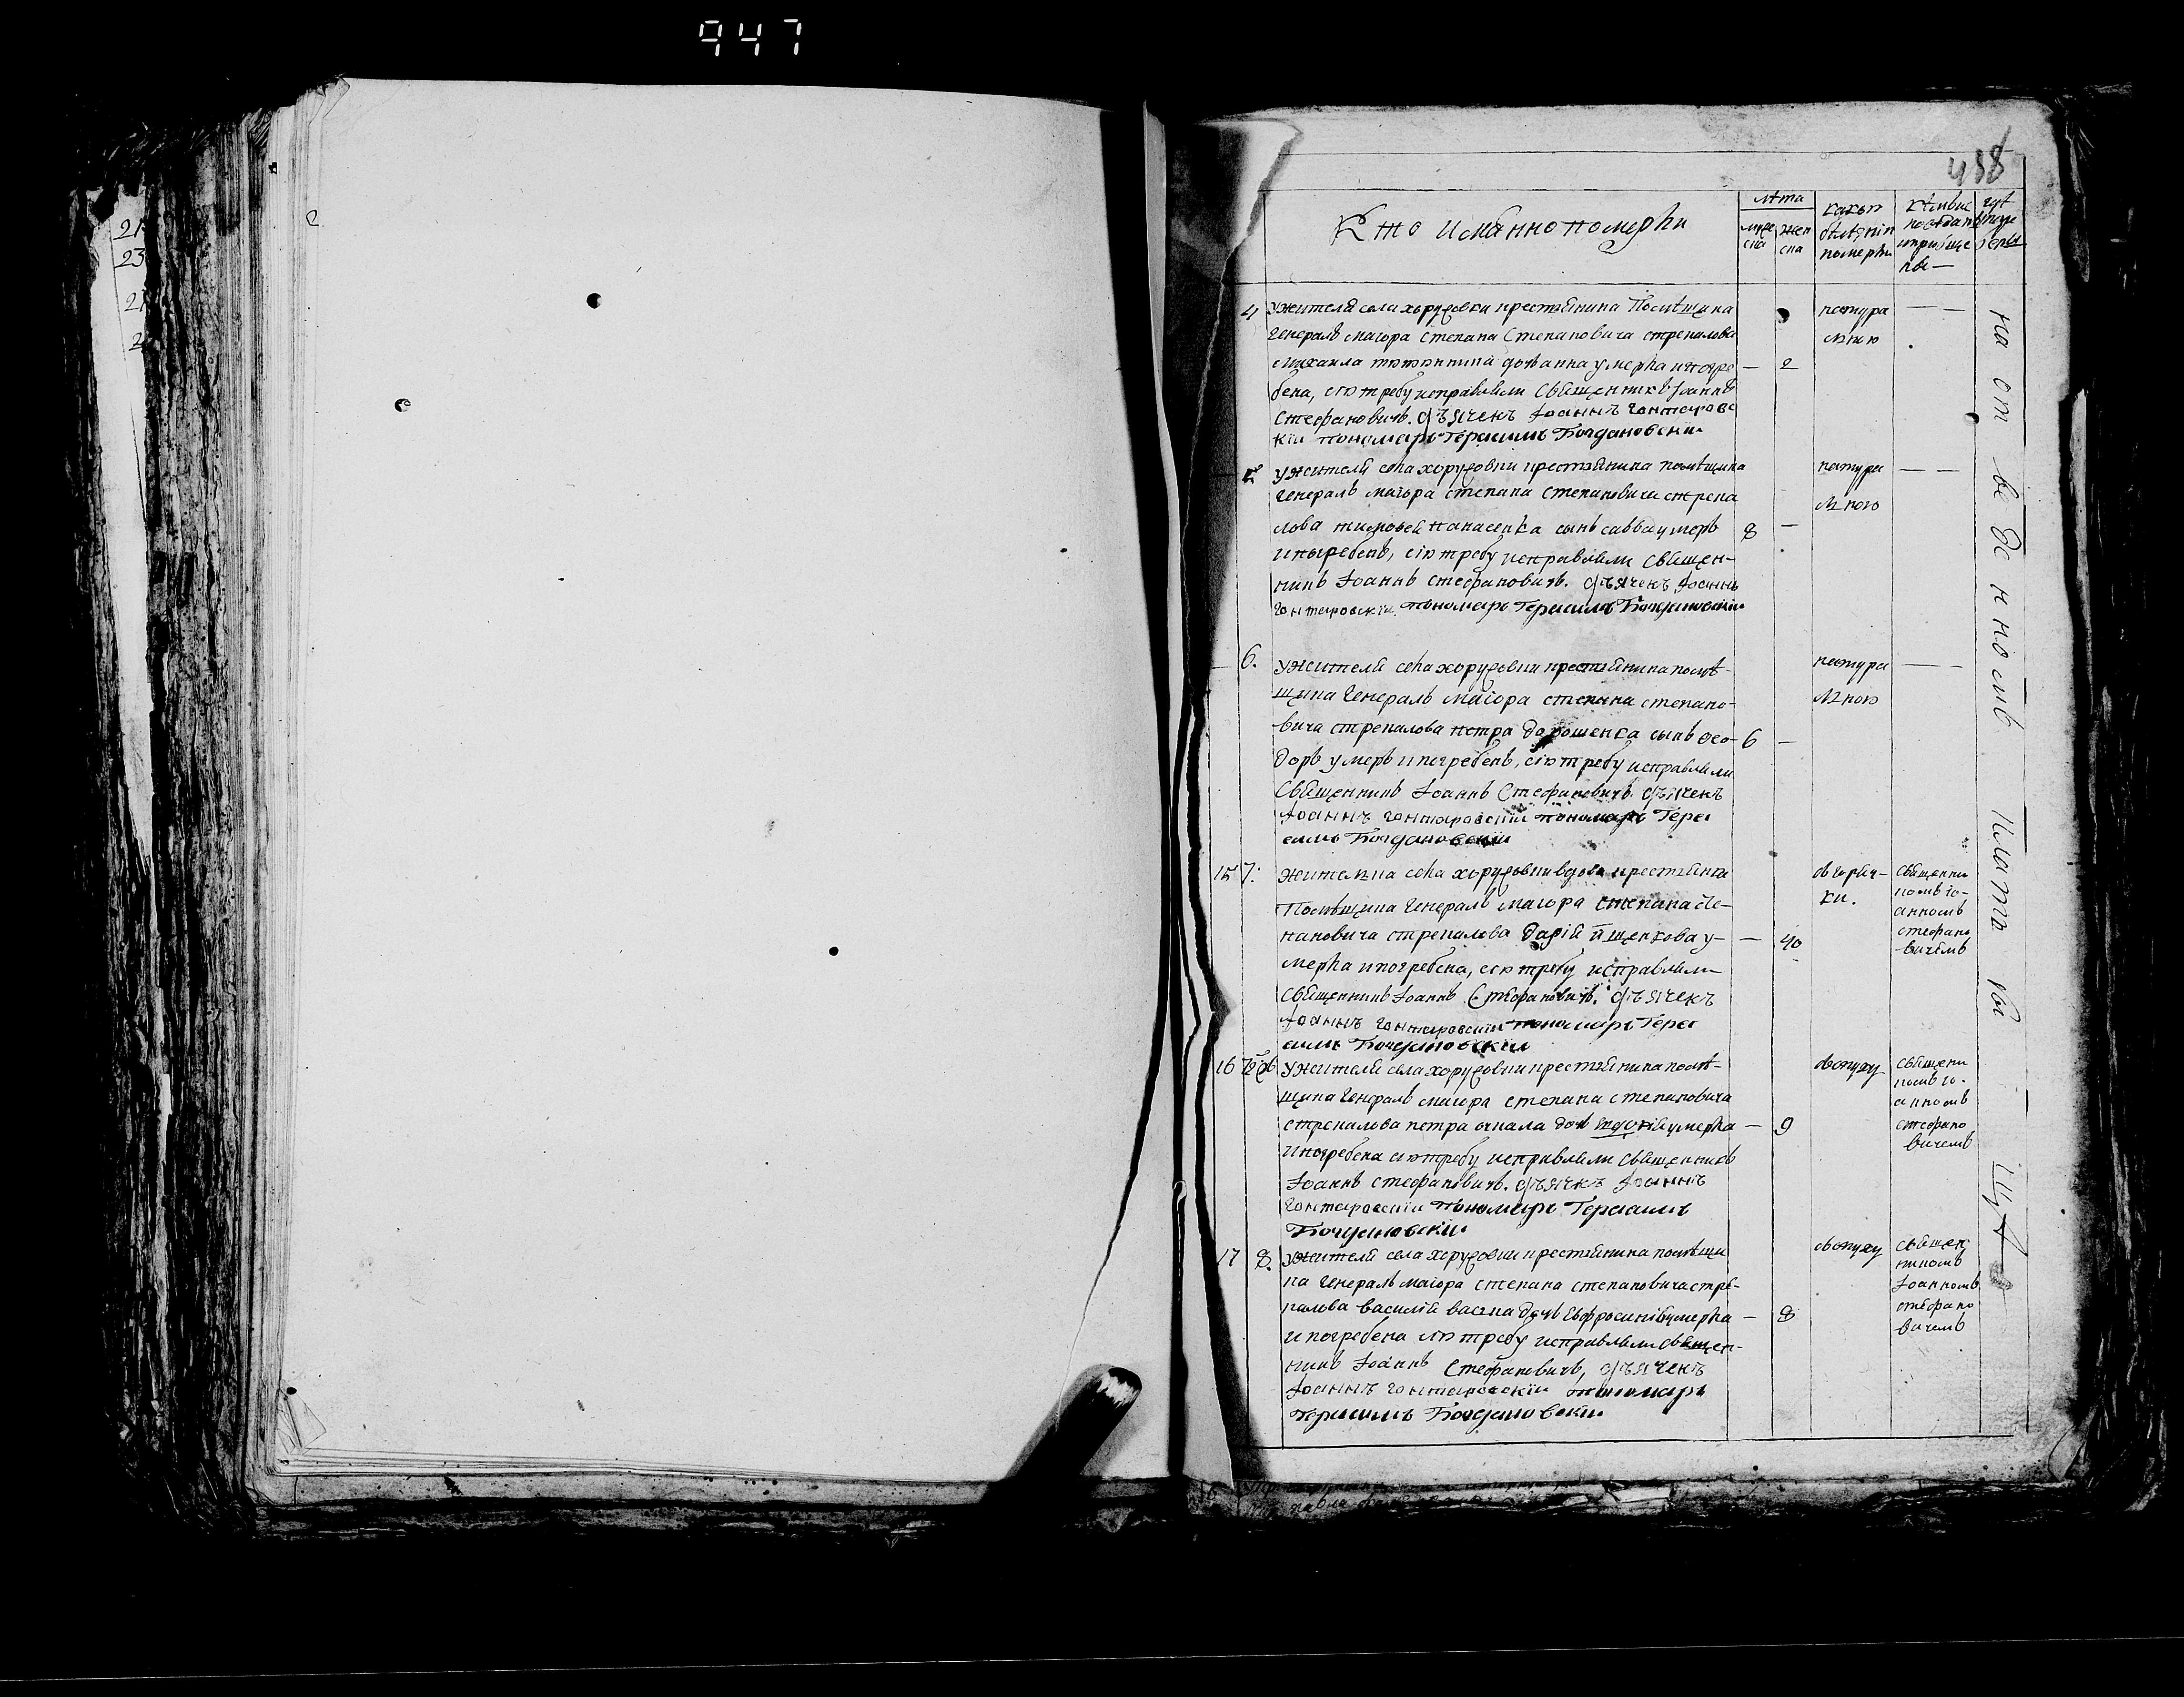 947
438
Кто имянно померли
лѣта
муже
ска
жен
ска
какою
болѣзнію
померли
кѣмъ ис
повѣданы
и приобще
ны —
гдѣ
погре
бены
4 У жителя села хоружовки крестьянина Помѣщика
Генералъ маіора Степана Степановича стрекалова
михаила дочь анна умерла и погре — 2
бена, сію требу исправляли Священникъ Іоаннъ
Стефановичъ. дьячекъ Іоаннъ Гонтаровс
кій пономарь Герасимъ Богдановскій
натура
лною
— —
5 У жителя села хоружовки крестьянина помѣщика
Генералъ маіора степана Степановича стрека
лова тимофея панасенка сынъ савва умеръ 8 —
и погребенъ, сію требу исправляли Священ-
никъ Іоаннъ Стефановичъ. дьячекъ Іоаннъ
Гонтаровскій пономарь Герасимъ Богдановскій
натура
лною
— —
6. У жителя села хоружовки крестьянина помѣ-
щика Генералъ маіора степана степано-
вича стрекалова петра дорошенка сынъ Ѳео- 6 —
доръ умеръ и погребенъ, сію требу исправляли
Священникъ Іоаннъ Стефановичъ дьячекъ
Іоаннъ Гонтаровскій пономарь Гера
симъ Богдановскій
натура
лною
— —
15 7. Жителка села хоружовки вдова крестьянка
Помѣщика Генералъ маіора степана Сте-
пановича стрекалова Дарія у- — 40
мерла и погребена, сію требу исправляли
Священникъ Іоаннъ Стефановичъ. дьячекъ
Іоаннъ Гонтаровскій пономарь Гера
симъ Богдановскій
ѡгоряч-
ки.
священни
комъ іо-
анномъ
стефано
вичемъ
16 У жителя села хоружовки крестьянина помѣ-
щика Генералъ маіора степана степановича
стрекалова петра дочь умерла — 9
и погребена сію требу исправляли Священникъ
Іоаннъ стефановичъ. дьячекъ Іоаннъ
Гонтаровскій пономарь Герасимъ
Богдановскій
священи
комъ іо-
анномъ
стефано
вичемъ
17 8. У жителя села хоружовки крестьянина помѣщи
ка Генералъ маіора степана степановича стре-
калова василія дочь Евфросинія умерла — 8
и погребена сію требу исправляли Священ-
никъ Іоаннъ Стефановичъ, дьячекъ
Іоаннъ Гонтаровскій пономарь
Герасимъ Богдановскій
свящек
никомъ
Іоанномъ
стефано
вичемъ
на отведенномъ